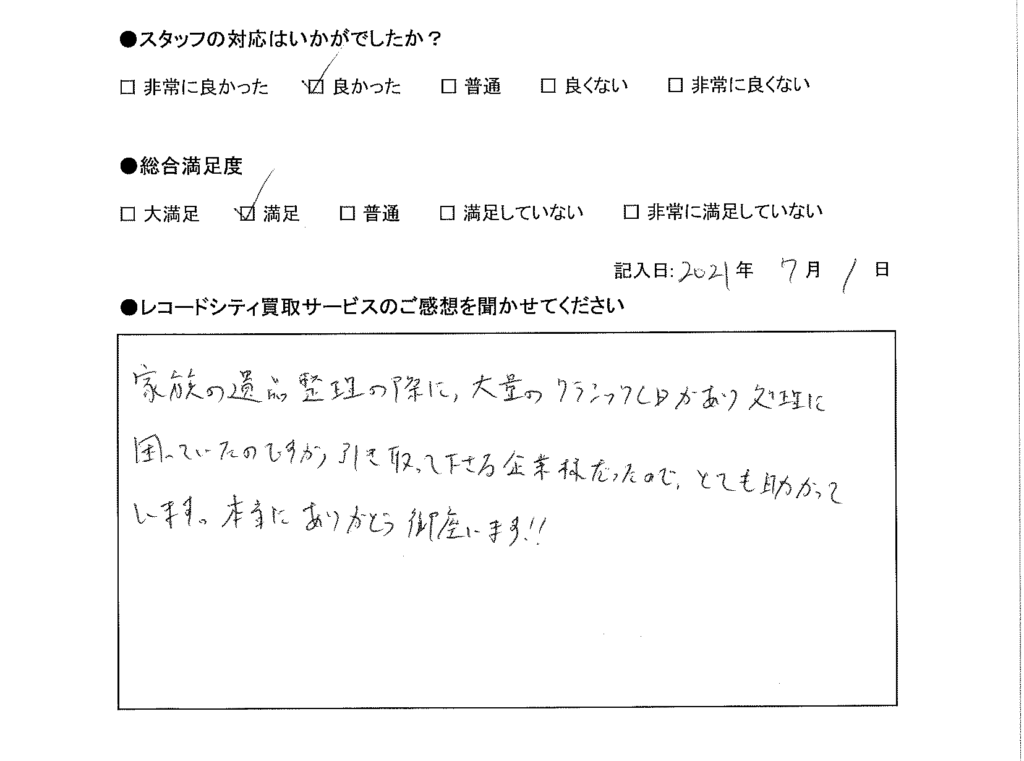 ●スタッフの対応はいかがでしたか?
□ 非常に良かった ☑ 良かった □ 普通 □ 良くない □ 非常に良くない
●総合満足度
□ 大満足 ☑ 満足 □ 普通 □ 満足していない □ 非常に満足していない
記入日: 2021 年 7 月 1 日
●レコードシティ買取サービスのご感想を聞かせてください
家族の遺品整理の際に、大量のクラシックCDがあり処理に
困っていたのですが、引き取って下さる企業様だったので、とても助かって
います。本当にありがとう御座います!!